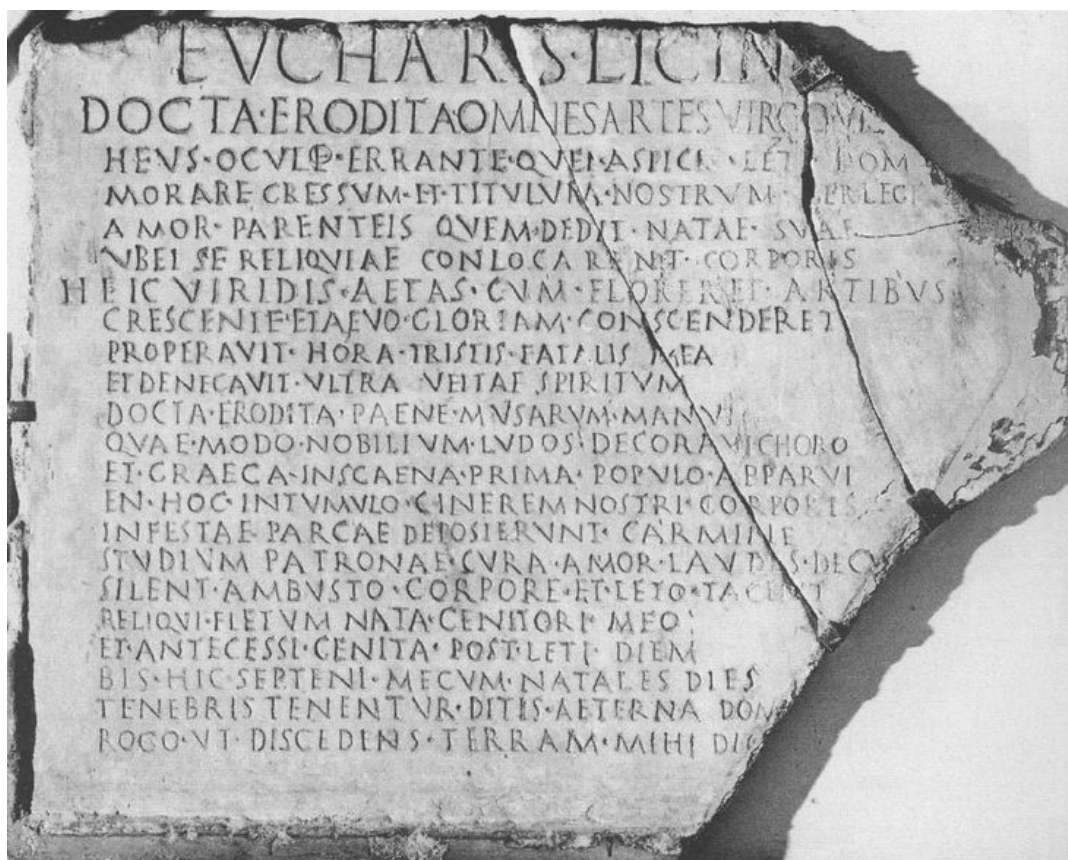 EVCHARIS·LICIN
DOCTA·ERODITA OMNES ARTES VIRGO
HEVS·OCVLO·ERRANTE·QVEI·ASPICIS·LETI·DOM
MORARE GRESSVM·ET·TITVLVM·NOSTRVM·PERLEGE
AMOR·PARENTEIS QVEM·DEDIT·NATAE·SVAE
VBEI SE RELIQVIAE CONLOCARENT·CORPORIS
HEIC VIRIDIS·AETAS·CVM·FLORERET·ARTIBVS
CRESCENTE·ET AEVO·GLORIAM·CONSCENDERET
PROPERAVIT·HORA·TRISTIS·FATALIS MEA
ET DENEGAVIT·VLTRA VEITAE SPIRITVM
DOCTA·ERODITA·PAENE·MVSARVM·MANV
QVAE·MODO·NOBILIVM·LVDOS·DECORAVI CHORO
ET·GRAECA·IN SCAENA·PRIMA·POPVLO·APPARVI
EN·HOC·IN TVMVLO·CINEREM NOSTRI·CORPORIS
INFESTAE·PARCAE DEPOSIERVNT·CARMINE
STVDIVM PATRONAE·CVRA·AMOR·LAVDES·DECV
SILENT·AMBVSTO·CORPORE·ET·LETO·TACENT
RELIQVI·FLETVM NATA·GENITORI·MEO
ET·ANTECESSI·GENITA·POST·LETI·DIEM
BIS·HIC·SEPTENI·MECVM·NATALES DIES
TENEBRIS TENENTVR·DITIS·AETERNA DOM
ROGO·VT·DISCEDENS·TERRAM·MIHI DIC